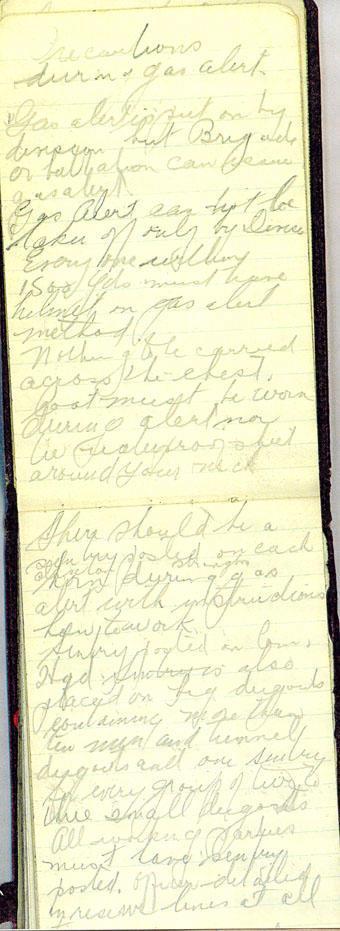 Precautions
during gas alert.
Gas alert is put on by
division but Brigade
or battalion can issue
gas alert
Gas Alert can not be
taken off only by Division
Every one within
1500 Yds must have
helmet on gas alert
method
Nothing to be carried
across the chest.
Coat must be worn
during alert nor
tie waterproof sheet
around your neck
There should be a
sentry posted on each
horn during gas
alert with instructions
how to work
Sentry posted on Com.
Hqd. Sentry is also
placed on big dugouts
containing more than
ten men and tunnel
dugouts and one sentry
to every group of two or
three small dugouts
All working parties
must have sentry
posted. Officer detailed
in reserve lines at all